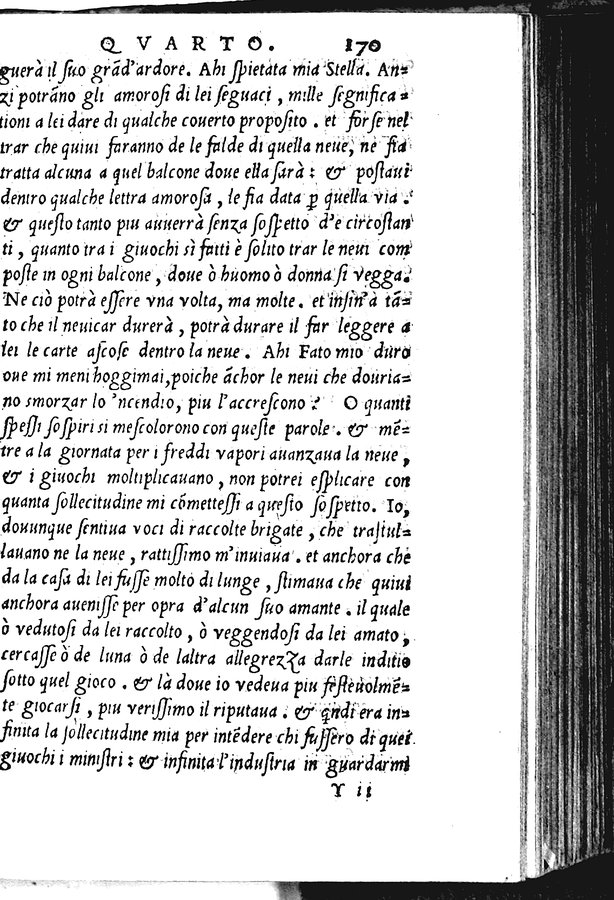 QVARTO. 170
guerà il suo grãd'ardore. Ahi spietata mia Stella. An=
zi potrãno gli amorosi di lei seguaci, mille segnifica=
tioni a lei dare di qualche couerto proposito. et forse nel
trar che quiui faranno de le falde di quella neue, ne fia
tratta alcuna a quel balcone doue ella sarà: & postaui
dentro qualche lettra amorosa, le fia data ꝑ quella via.
& questo tanto piu auuerrà senza sospetto d'e circostan
ti, quanto tra i giuochi sì fatti è solito trar le neui com
poste in ogni balcone, doue ò huomo ò donna si vegga.
Ne ciò potrà essere vna volta, ma molte. et insin'à tã=
to che il neuicar durerà, potrà durare il far leggere a
lei le carte ascose dentro la neue. Ahi Fato mio duro
oue mi meni hoggimai, poiche ãchor le neui che douria=
no smorzar lo 'ncendio, piu l'accrescono? O quanti
spessi sospiri si mescolorono con queste parole. & mẽ=
tre a la giornata per i freddi vapori auanzaua la neue,
& i giuochi moltiplicauano, non potrei esplicare con
quanta sollecitudine mi cõmettessi a questo sospetto. Io,
douunque sentiua voci di raccolte brigate, che trastul=
lauano ne la neue, rattissimo m'inuiaua. et anchora che
da la casa di lei fusse molto di lunge, stimaua che quiui
anchora auenisse per opra d'alcun suo amante. il quale
ò vedutosi da lei raccolto, ò veggendosi da lei amato,
cercasse ò de luna ò de laltra allegrezza darle inditio
sotto quel gioco. & là doue io vedeua piu festeuolmẽ=
te giocarsi, piu verissimo il riputaua. & qndi era in=
finita la sollecitudine mia per intẽdere chi fussero di quei
giuochi i ministri: & infinita l'industria in guardarmi
Y ii